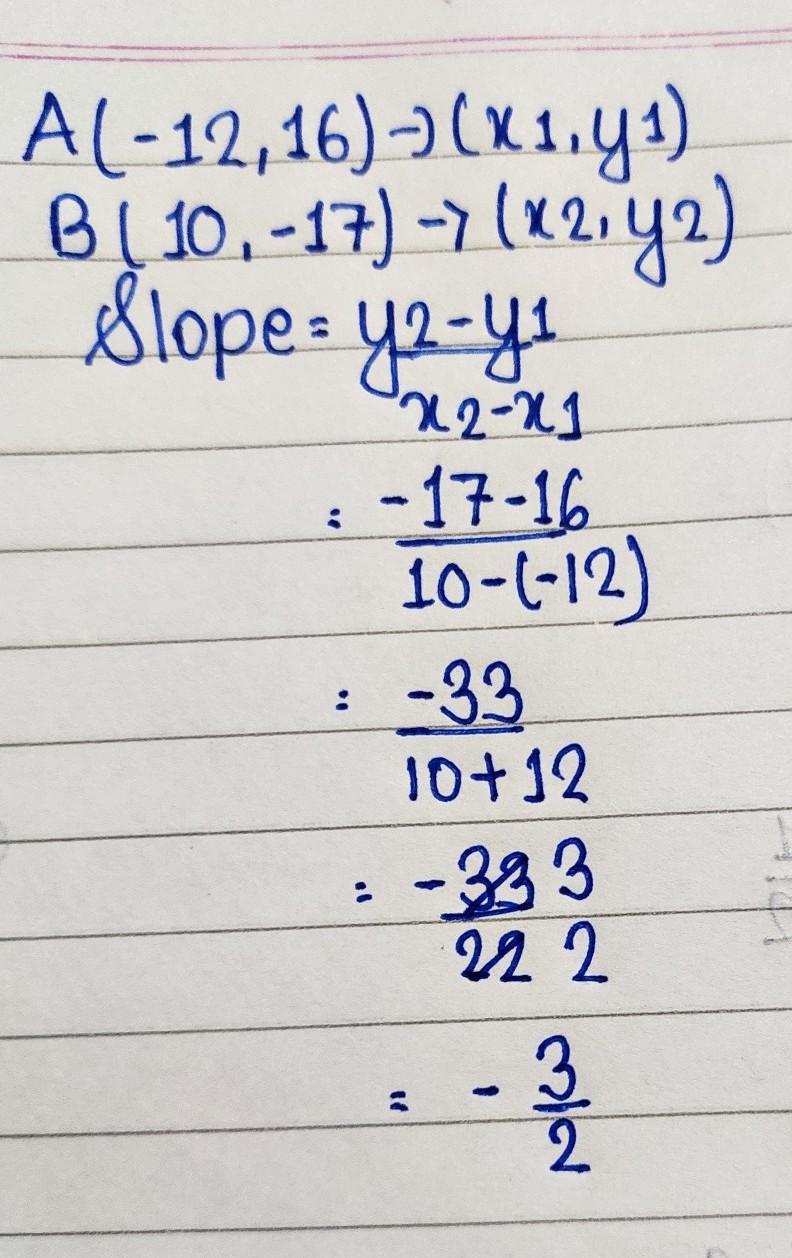 A(-12,16)→(x1,y1)
B(10,-17)→(x2,y2)
Slope = y2-y1
x2-x1
= -17-16
10-(-12)
= -33
10+12
= -33 3
22 2
= - 3
2